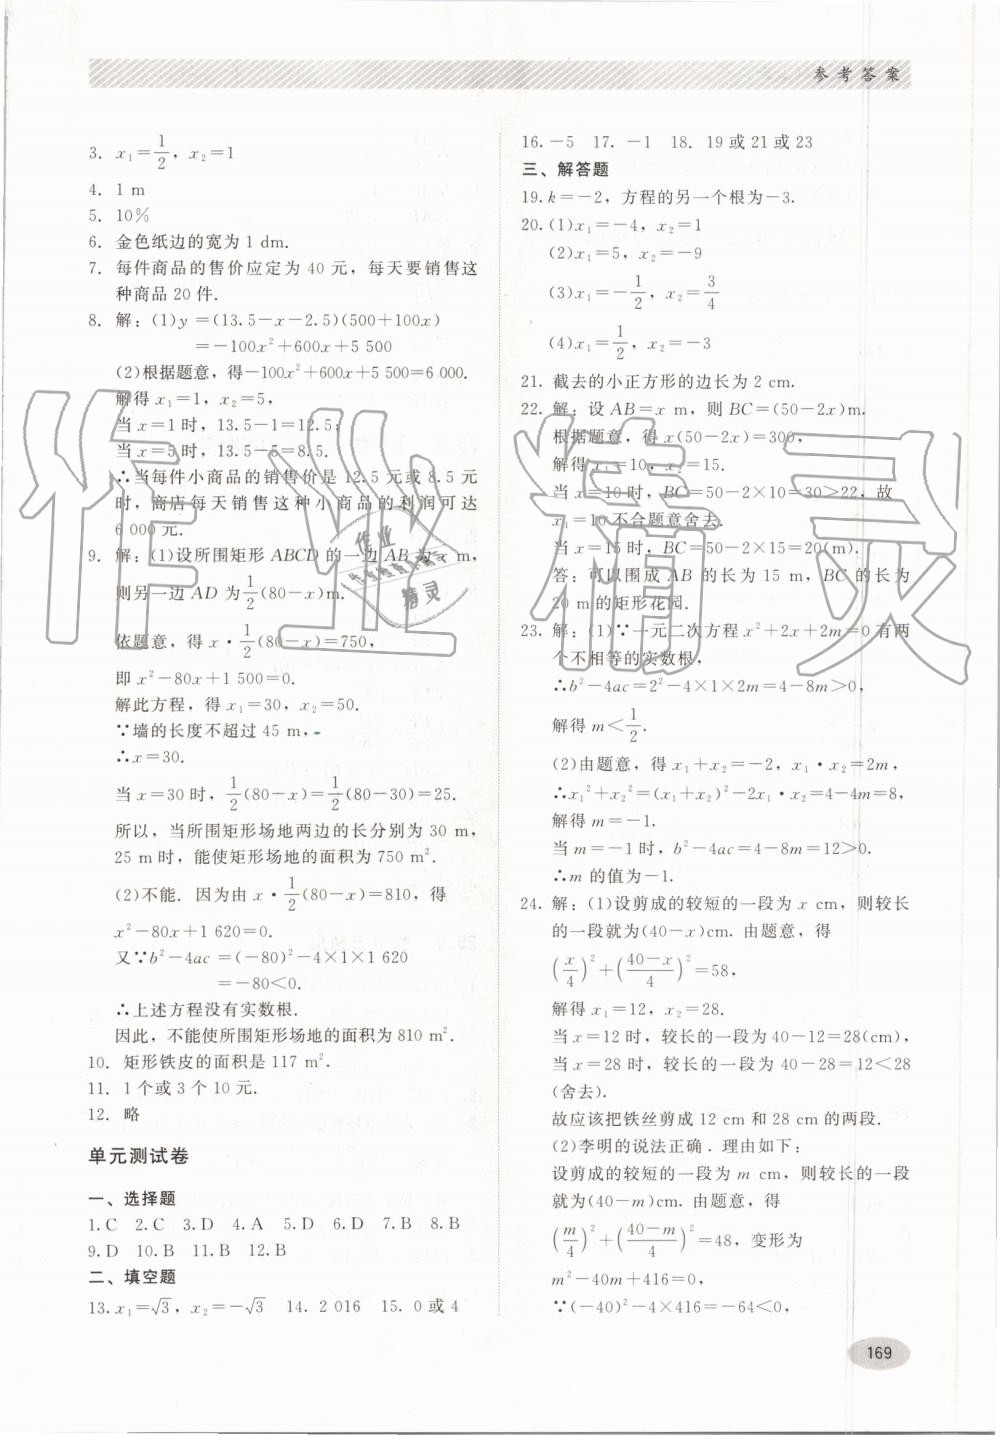 参考答案
3. x₁=1/2，x₂=1
4. 1 m
5. 10%
6. 金色纸边的宽为 1 dm.
7. 每件商品的售价应定为 40 元，每天要销售这
种商品 20 件.
8. 解：(1)y =(13.5-x-2.5)(500+100x)
=-100x²+600x+5 500
(2)根据题意，得-100x²+600x+5 500=6 000.
解得 x₁=1，x₂=5，
当 x=1 时，13.5-1=12.5；
当 x=5 时，13.5-5=8.5.
∴当每件小商品的销售价是 12.5 元或 8.5 元
时，商店每天销售这种小商品的利润可达
6 000 元.
9. 解：(1)设所围矩形 ABCD 的一边 AB 为 x m，
则另一边 AD 为 1/2(80-x)m.
依题意，得 x·1/2(80-x)=750，
即 x²-80x+1 500=0.
解此方程，得 x₁=30，x₂=50.
∵墙的长度不超过 45 m，
∴x=30.
当 x=30 时，1/2(80-x)=1/2(80-30)=25.
所以，当所围矩形场地两边的长分别为 30 m，
25 m 时，能使矩形场地的面积为 750 m².
(2)不能. 因为由 x·1/2(80-x)=810，得
x²-80x+1 620=0.
又∵b²-4ac =(-80)²-4×1×1 620
=-80<0.
∴上述方程没有实数根.
因此，不能使所围矩形场地的面积为 810 m².
10. 矩形铁皮的面积是 117 m².
11. 1 个或 3 个 10 元.
12. 略
单元测试卷
一、选择题
1.C 2.C 3.D 4.A 5.D 6.D 7.B 8.B
9.D 10.B 11.B 12.B
二、填空题
13.x₁=√3，x₂=-√3 14. 2 016 15. 0 或 4
16. -5 17. -1 18. 19 或 21 或 23
三、解答题
19.k=-2，方程的另一个根为-3.
20.(1)x₁=-4，x₂=1
(2)x₁=5，x₂=-9
(3)x₁=-1/2，x₂=3/4
(4)x₁=1/2，x₂=-3
21. 截去的小正方形的边长为 2 cm.
22. 解：设 AB=x m，则 BC=(50-2x)m.
根据题意，得 x(50-2x)=300，
解得 x₁=10，x₂=15.
当 x=10 时，BC=50-2×10=30>22，故
x₁=10 不合题意舍去.
当 x=15 时，BC=50-2×15=20(m).
答：可以围成 AB 的长为 15 m，BC 的长为
20 m 的矩形花园.
23. 解：(1)∵一元二次方程 x²+2x+2m=0 有两
个不相等的实数根，
∴b²-4ac=2²-4×1×2m=4-8m>0，
解得 m<1/2.
(2)由题意，得 x₁+x₂=-2，x₁·x₂=2m，
∴x₁²+x₂²=(x₁+x₂)²-2x₁·x₂=4-4m=8，
解得 m=-1.
当 m=-1 时，b²-4ac=4-8m=12>0.
∴m 的值为-1.
24. 解：(1)设剪成的较短的一段为 x cm，则较长
的一段就为(40-x)cm. 由题意，得
(x/4)²+((40-x)/4)²=58，
解得 x₁=12，x₂=28.
当 x=12 时，较长的一段为 40-12=28(cm)，
当 x=28 时，较长的一段为 40-28=12<28
(舍去).
故应该把铁丝剪成 12 cm 和 28 cm 的两段.
(2)李明的说法正确. 理由如下：
设剪成的较短的一段为 m cm，则较长的一段
就为(40-m)cm. 由题意，得
(m/4)²+((40-m)/4)²=48，变形为
m²-40m+416=0.
∵(-40)²-4×416=-64<0，
169
作业精灵
作业
精灵